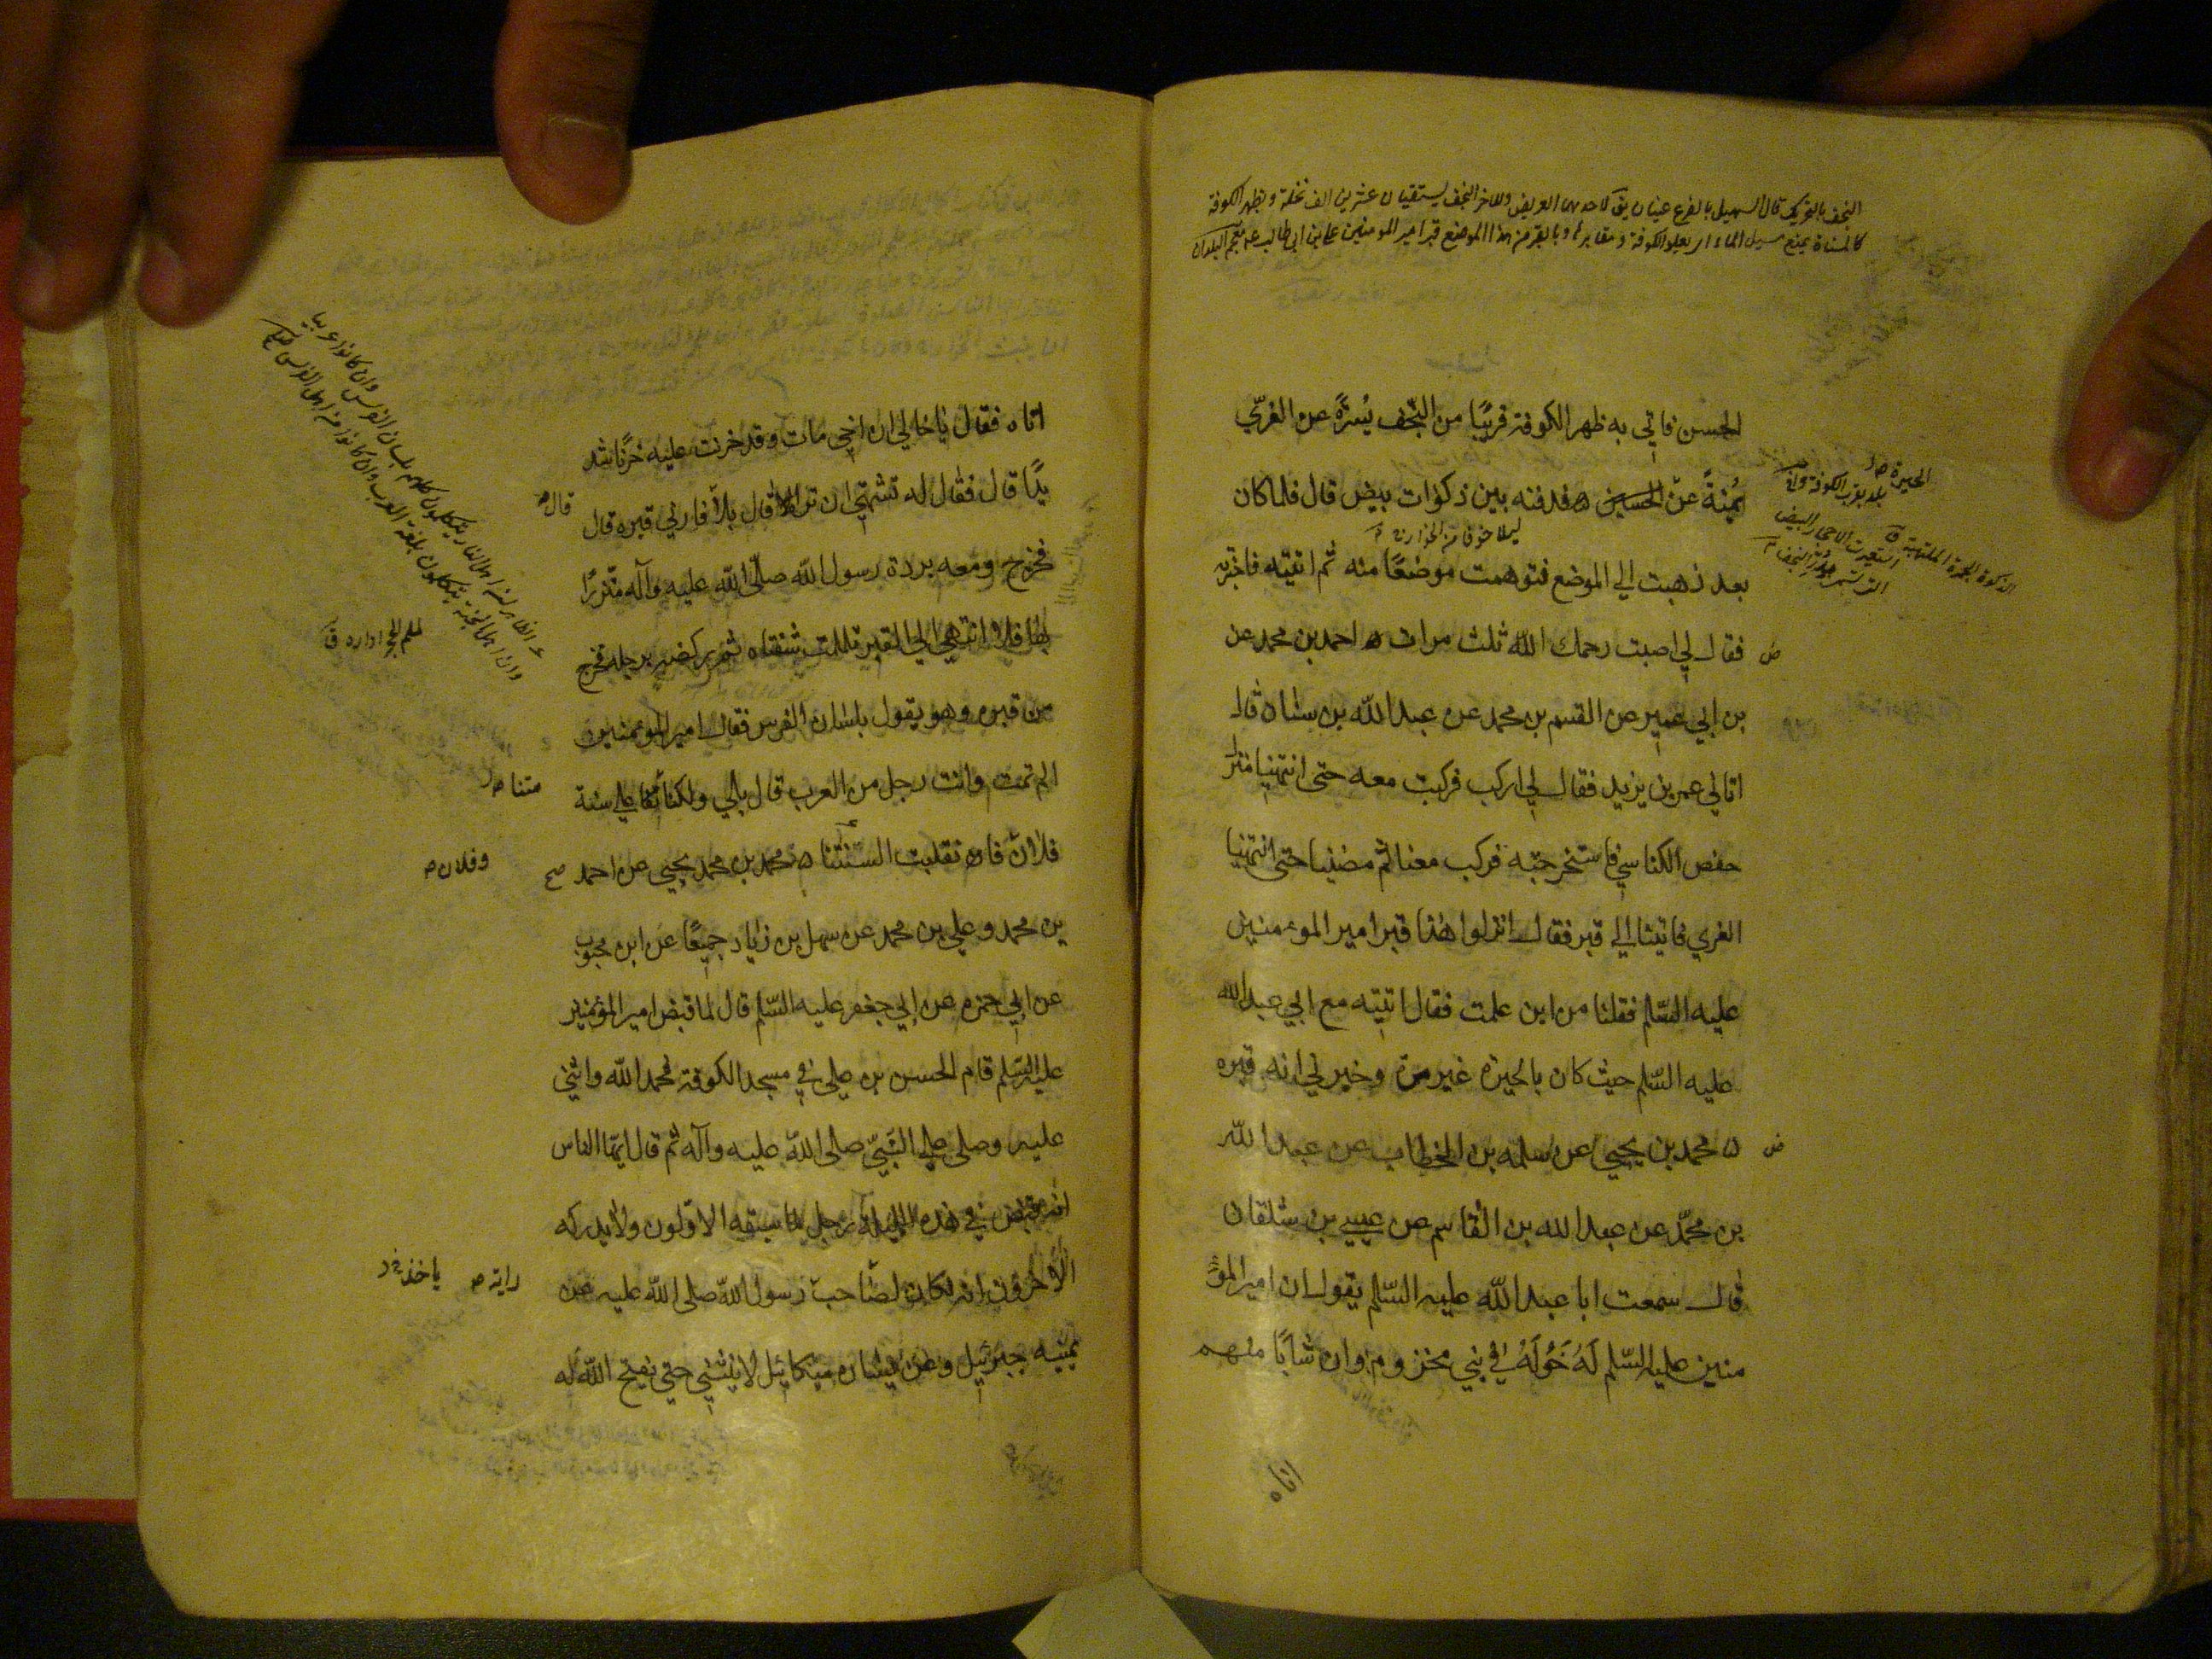 النجف بالتحريك قال السهيلي بالفرع عينان يق لاحدهما العريض وللاخر النجف يستقيان عشرين الف نخلة وبظهر الكوفة
كالمسناة يمنع مسيل الماء ان يعلو الكوفة ومقابرها وبالقرب من هذا الموضع قبر امير المومنين علي بن ابي طالب ع معجم البلدان
الحسن فاتي به ظهر الكوفة قريبًا من النّجف يُسرَةً عن الغريّ
يُمنةً عن الحسين ه فدفنه بين ذكوات بيض قال فلما كان
بعد ذهبت الي الموضع فتوهمت موضعًا منه ثم اتيته فاخبرته
فقال لي اصبت رحمك اللّه ثلث مرات ه احمد بن محمد عن
بن ابي عمير عن القسم بن محمد عن عبد اللّه بن سنان قال
اتاني عمر بن يزيد فقال لي اركب فركبت معه حتى انتهينا منزل
حفص الكناسي فاستخرجته فركب معنا ثم مضينا حتى انتهينا
الغري فاتينا الي قبر فقال انزلوا هذا قبر امير المومنين
عليه السّلم فقلنا من اين علمت فقال اتيته مع ابي عبد اللّه
عليه السّلم حيث كان بالحيرة غير مرة وخبرني انه قبره
ه محمد بن يحيي عن سلمة بن الخطاب عن عبد اللّه
بن محمّد عن عبد الله بن القاسم عن عيسي بن شلقان
قال سمعت ابا عبد اللّه عليه السّلم يقول ان امير المؤ
منين عليه السّلم لَهُ خَوُلَهُ في بني مخزوم وان شابًا منهم
اتاه
الحيرة
بلد بقرب الكوفة
الذكوة الجمرة الملتهبة ق
استعيرت الاحجار البيض
ليلا خوفا من الخوارج
ض
ض
اتاه فقال يا خالي ان اخي مات وقد حزنت عليه حزنًا شد
يدًا قال فقال له تشتهي ان تراه قال بلي فارني قبره قال
فخرج ومعه بردة رسول اللّه صلّي اللّه عليه وآله متّزرًا
بها فلما انتهي الي القبر تململت شفتاه ثم ركضه برجله فخرج
من قبره وهو يقول بلسان الفرس فقال امير المؤمنين
الم تمت وانت رجل من العرب قال بلي ولكنا علي سنة
فلان فانقلبت السنتنا ه محمد بن محمد يحيي عن احمد
بن محمد وعلي بن محمد عن سهل بن زياد جميعًا عن ابن محبوب
عن ابي حمزه عن ابي جعفر عليه السّلم قال لما قبض امير المؤمنين
عليه السّلم قام الحسن بن علي في مسجد الكوفة فحمد اللّه واثني
عليه وصلي علي النّبيّ صلي اللّه عليه وآله ثم قال ايّها الناس
انه قبض في هذه الليلة رجل ما سبقه الاوّلون ولا يدركه
الآخرون انه كان لصاحب رسول اللّه صلي اللّه عليه عن
يمينه جبرئيل وعن يساره ميكائيل لا ينثني حتي يفتح اللّه له
قال
متنا
وفلان
صح
راية
ياخذ